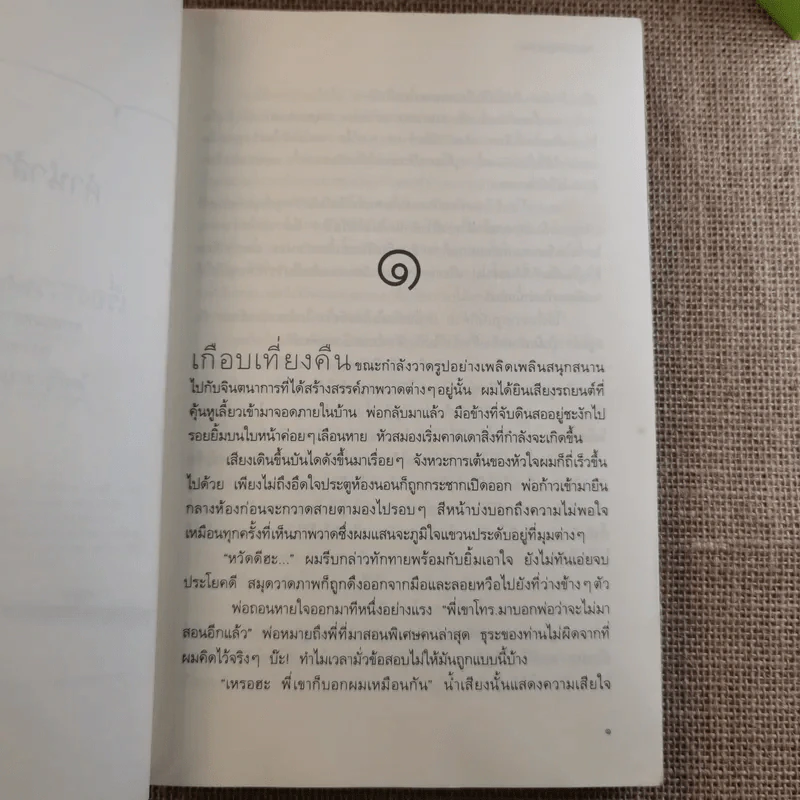 ๑
เกือบเที่ยงคืน ขณะกำลังวาดรูปอย่างเพลิดเพลินสนุกสนาน
ไปกับจินตนาการที่ได้สร้างสรรค์ภาพวาดต่างๆ อยู่นั้น ผมได้ยินเสียงรถยนต์ที่
คุ้นหูเลี้ยวเข้ามาจอดภายในบ้าน พ่อกลับมาแล้ว มือข้างที่จับดินสออยู่ชะงักไป
รอยยิ้มบนใบหน้าค่อยๆ เลือนหาย หัวสมองเริ่มคาดเดาสิ่งที่กำลังจะเกิดขึ้น
เสียงเดินขึ้นบันไดดังขึ้นมาเรื่อยๆ จังหวะการเต้นของหัวใจผมก็ถี่เร็วขึ้น
ไปด้วย เพียงไม่ถึงอึดใจประตูห้องนอนก็ถูกกระชากเปิดออก พ่อก้าวเข้ามายืน
กลางห้องก่อนจะกวาดสายตามองไปรอบๆ สีหน้าบ่งบอกถึงความไม่พอใจ
เหมือนทุกครั้งที่เห็นภาพวาดซึ่งผมแสนจะภูมิใจแขวนประดับอยู่ที่มุมต่างๆ
“หวัดดีฮะ...” ผมรีบกล่าวทักทายพร้อมกับยิ้มเอาใจ ยังไม่ทันเอ่ยจบ
ประโยคดี สมุดวาดภาพก็ถูกดึงออกจากมือและลอยหวือไปยังที่ว่างข้างๆ ตัว
พ่อถอนหายใจออกมาทีหนึ่งอย่างแรง “พี่เขาโทร.มาบอกพ่อว่าจะไม่มา
สอนอีกแล้ว” พ่อหมายถึงพี่ที่มาสอนพิเศษคนล่าสุด ธุระของท่านไม่ผิดจากที่
ผมคิดไว้จริงๆ บ๊ะ! ทำไมเวลามั่วข้อสอบไม่ให้มันถูกแบบนี้บ้าง
“เหรอฮะ พี่เขาก็บอกผมเหมือนกัน” น้ำเสียงนั้นแสดงความเสียใจ
๑